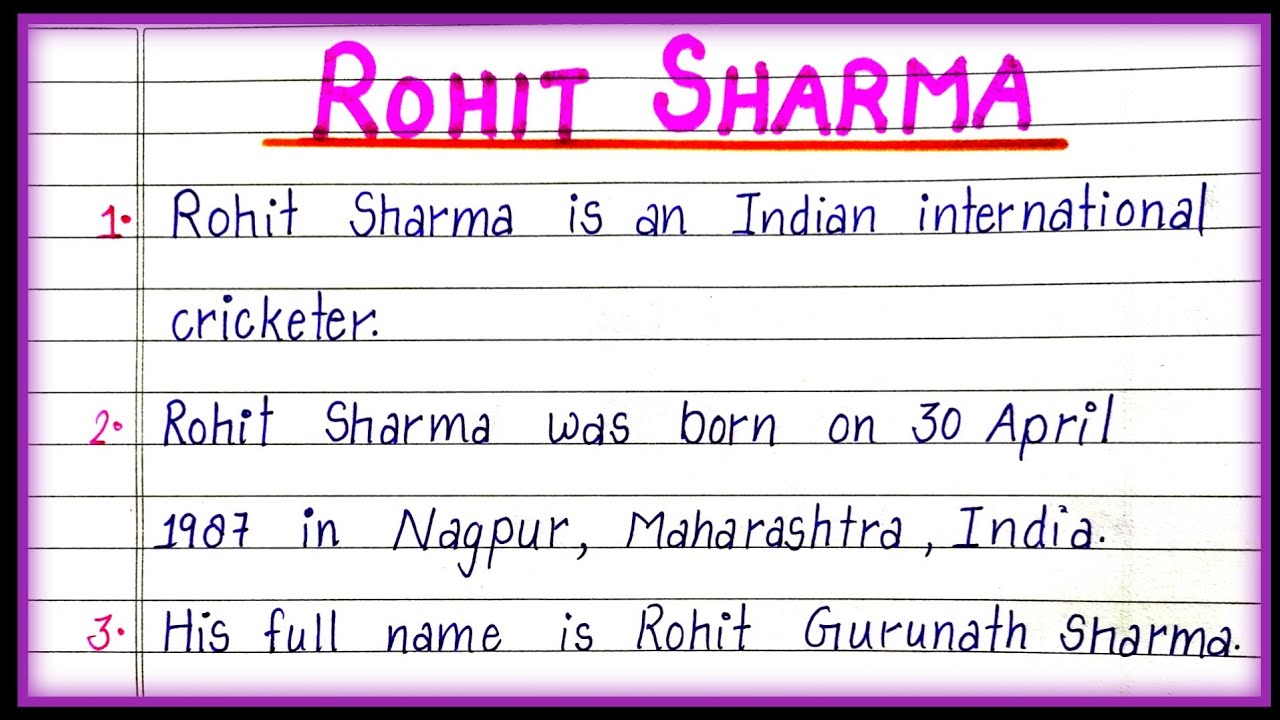 ROHIT SHARMA
1. Rohit Sharma is an Indian international
cricketer.
2. Rohit Sharma was born on 30 April
1987 in Nagpur, Maharashtra, India.
3. His full name is Rohit Gurunath Sharma.